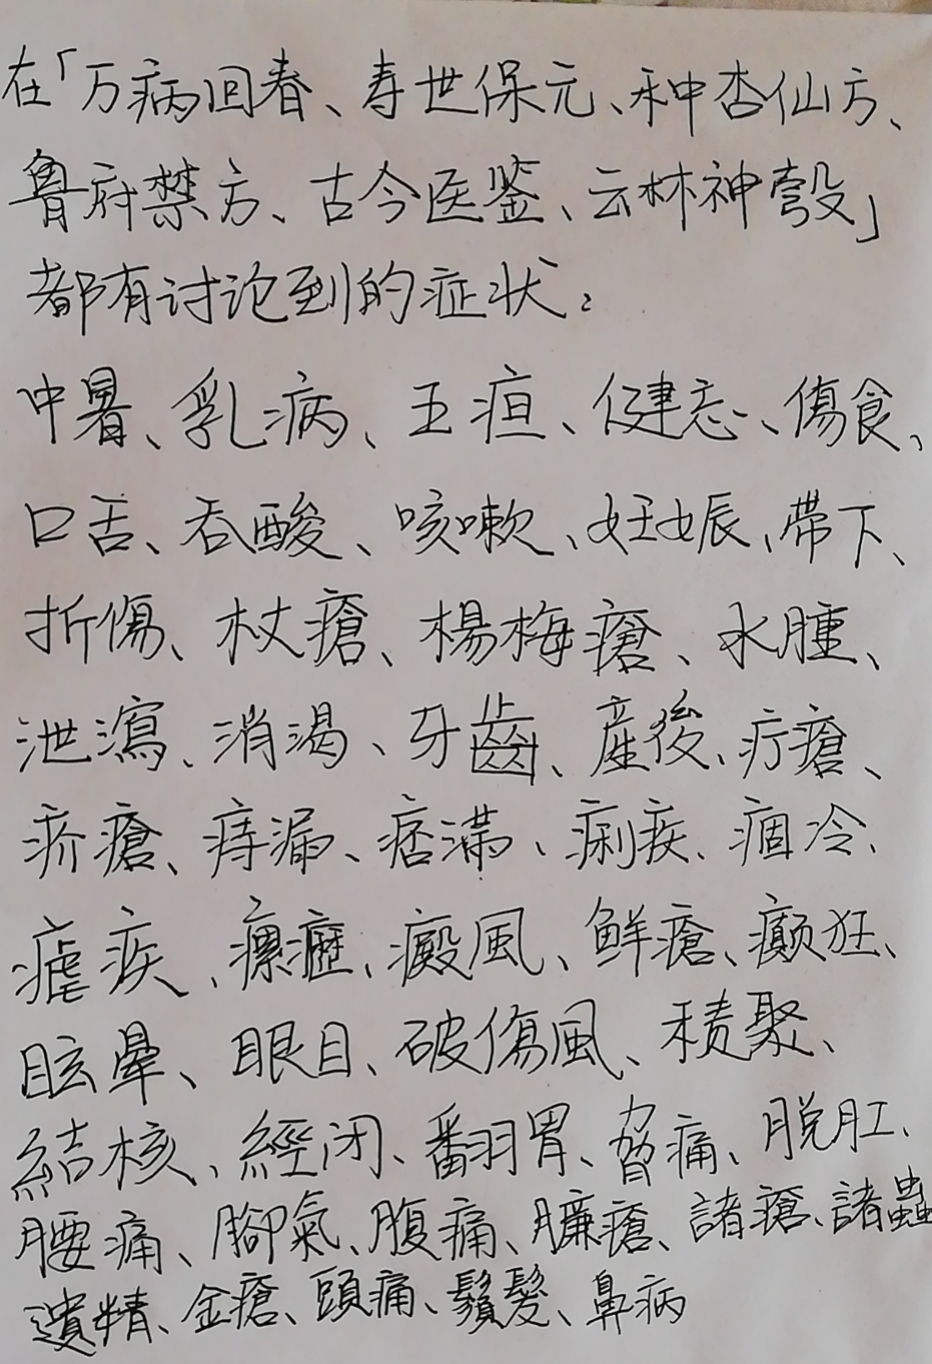 在「万病回春、寿世保元、种杏仙方、
鲁府禁方、古今医鉴、云林神彀」
都有讨论到的症状：
中暑、乳病、五疸、健忘、傷食、
口舌、吞酸、咳嗽、妊娠、帶下、
折傷、杖瘡、楊梅瘡、水腫、
泄瀉、消渴、牙齒、産後、疔瘡、
疥瘡、痔漏、痞满、痢疾、痼冷、
瘧疾、瘰癧、癜風、鮮瘡、癫狂、
眩暈、眼目、破傷風、積聚、
結核、經闭、翻胃、脅痛、脱肛、
腰痛、腳氣、腹痛、臁瘡、諸瘡、諸蟲
遺精、金瘡、頭痛、鬚髮、鼻病